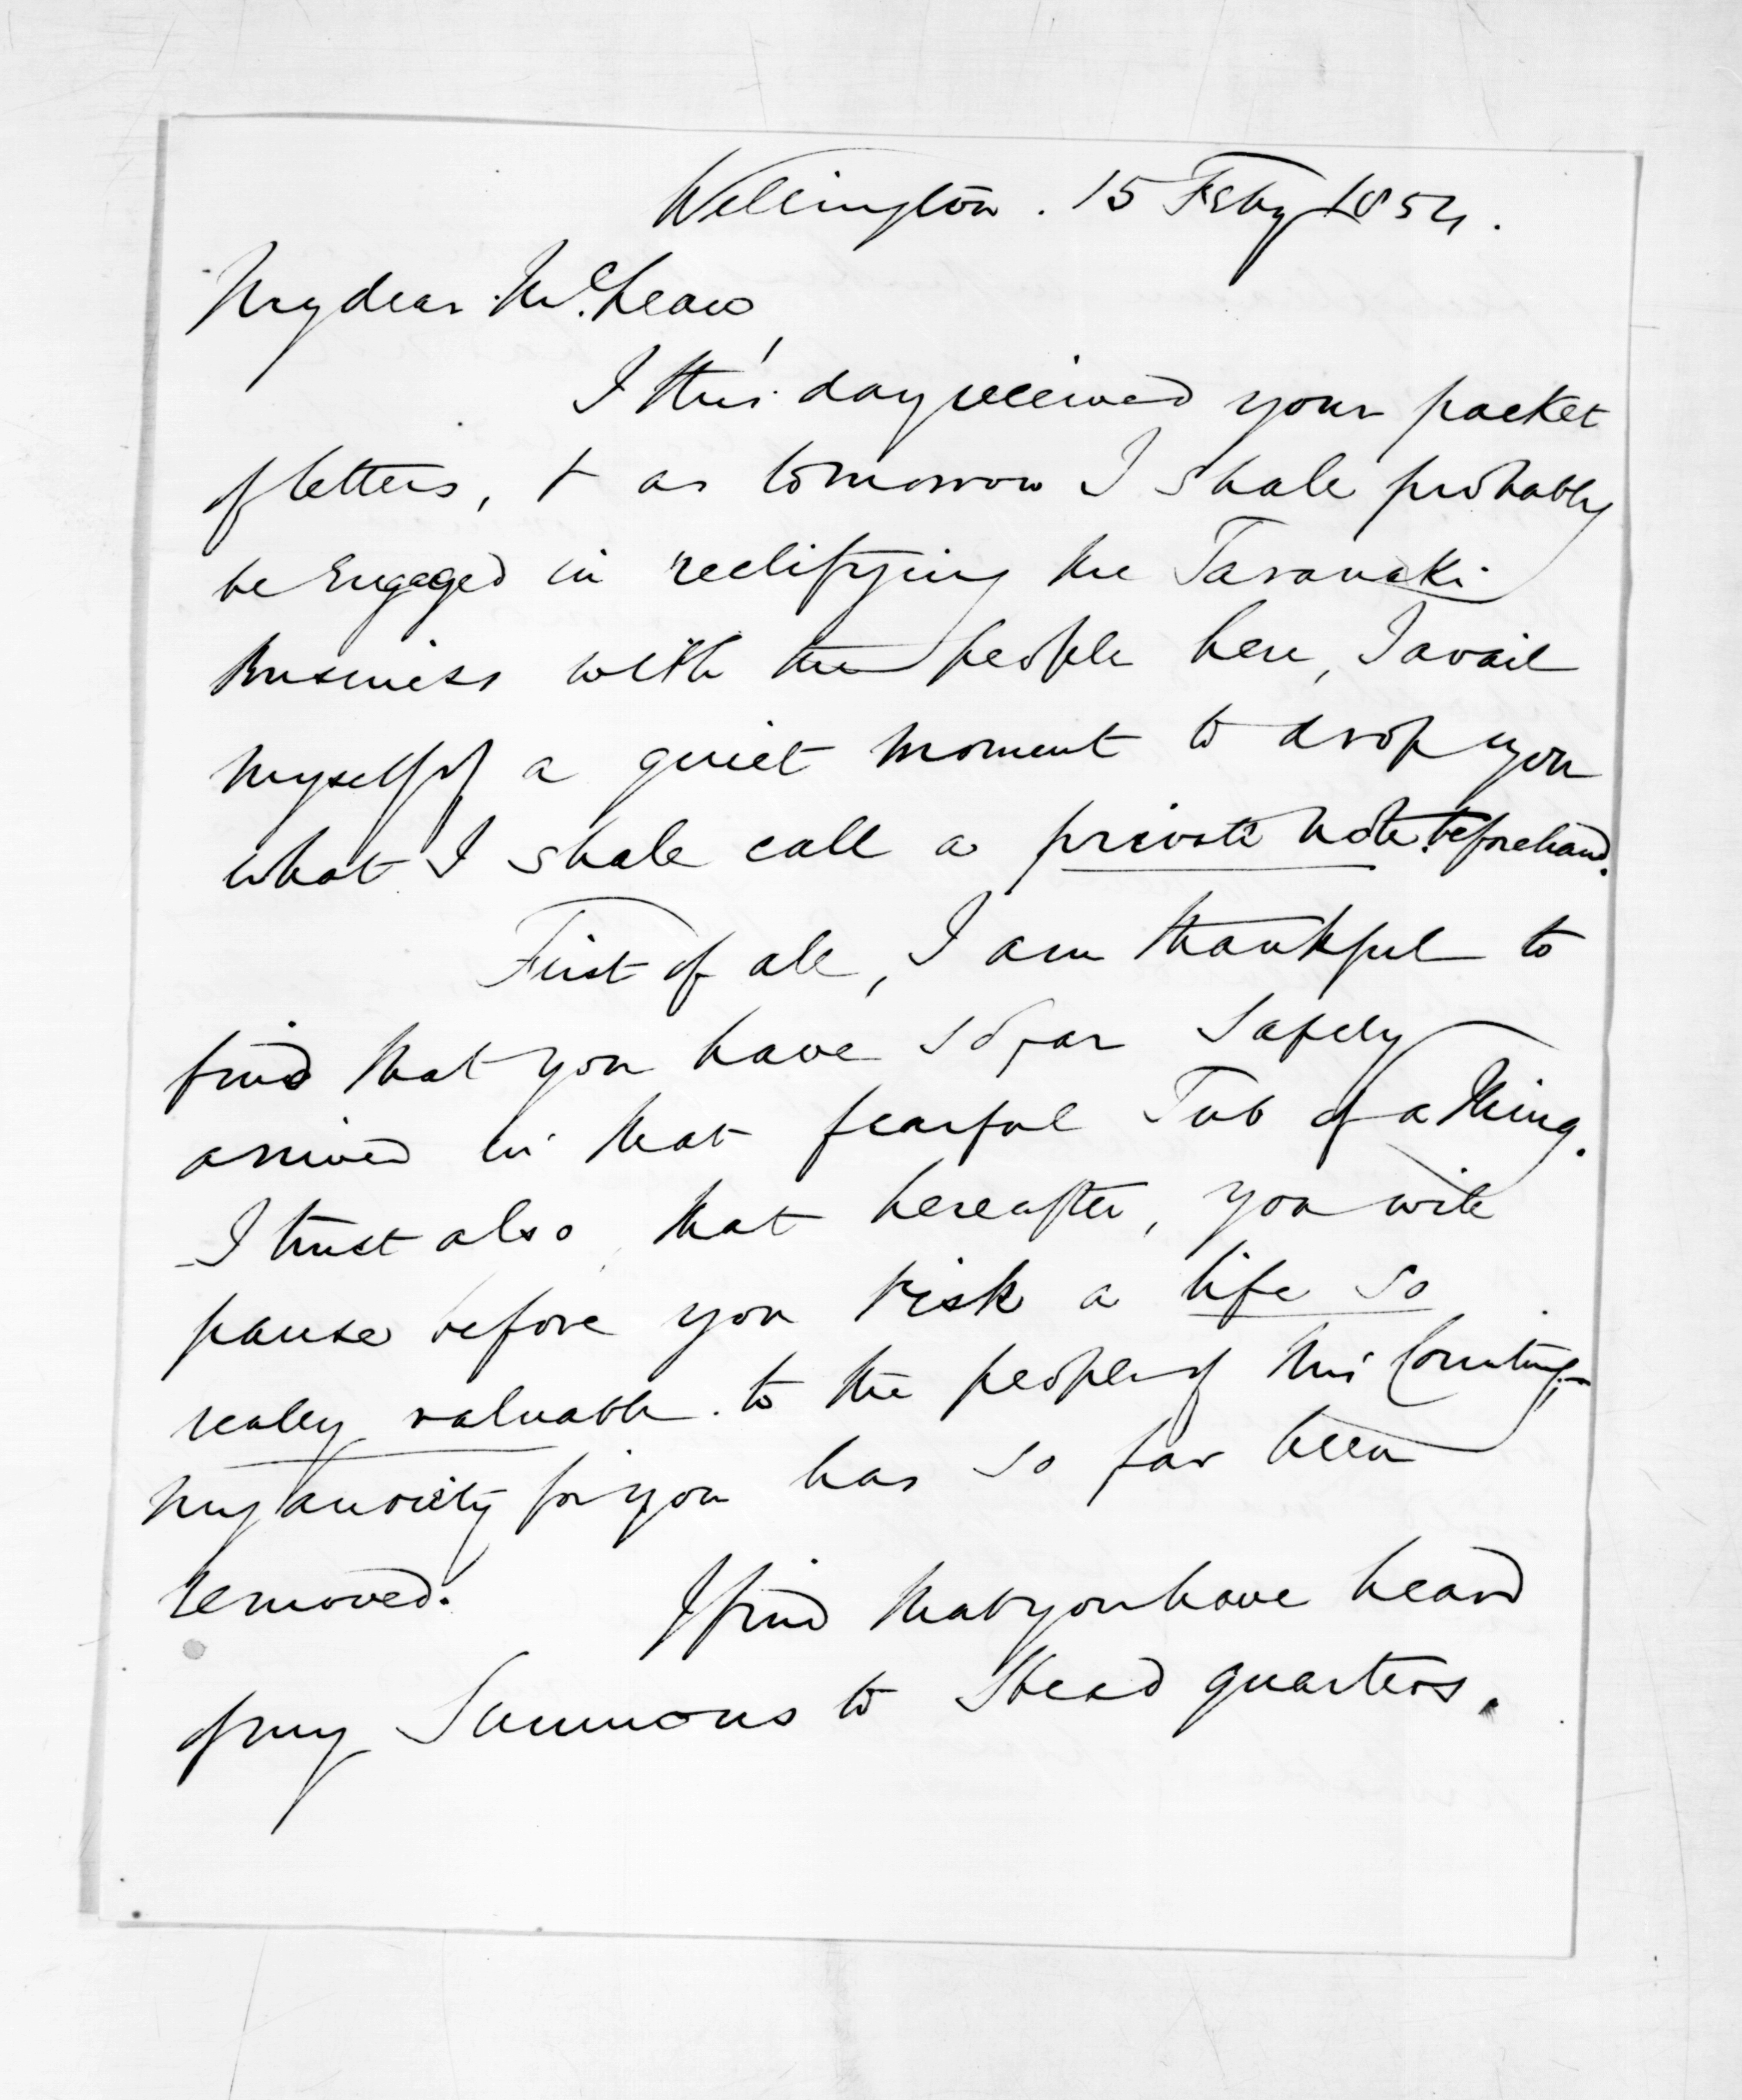 Wellington. 15 Feby 1854.
My dear McLean,
I this day received your packet
of letters, & as tomorrow I shall probably
be Engaged in rectifying the Taranaki
Business with the people here, I avail
myself of a quiet moment to drop you
what I shall call a private note beforehand.
First of all, I am thankful to
find that you have so far safely
arrived in that fearful Tub of a thing.
I trust also that hereafter, you will
pause before you risk a life so
really valuable to the people of this Country,
my anxiety for you has so far been
removed. I find that you have heard
of my Summons to Head quarters.